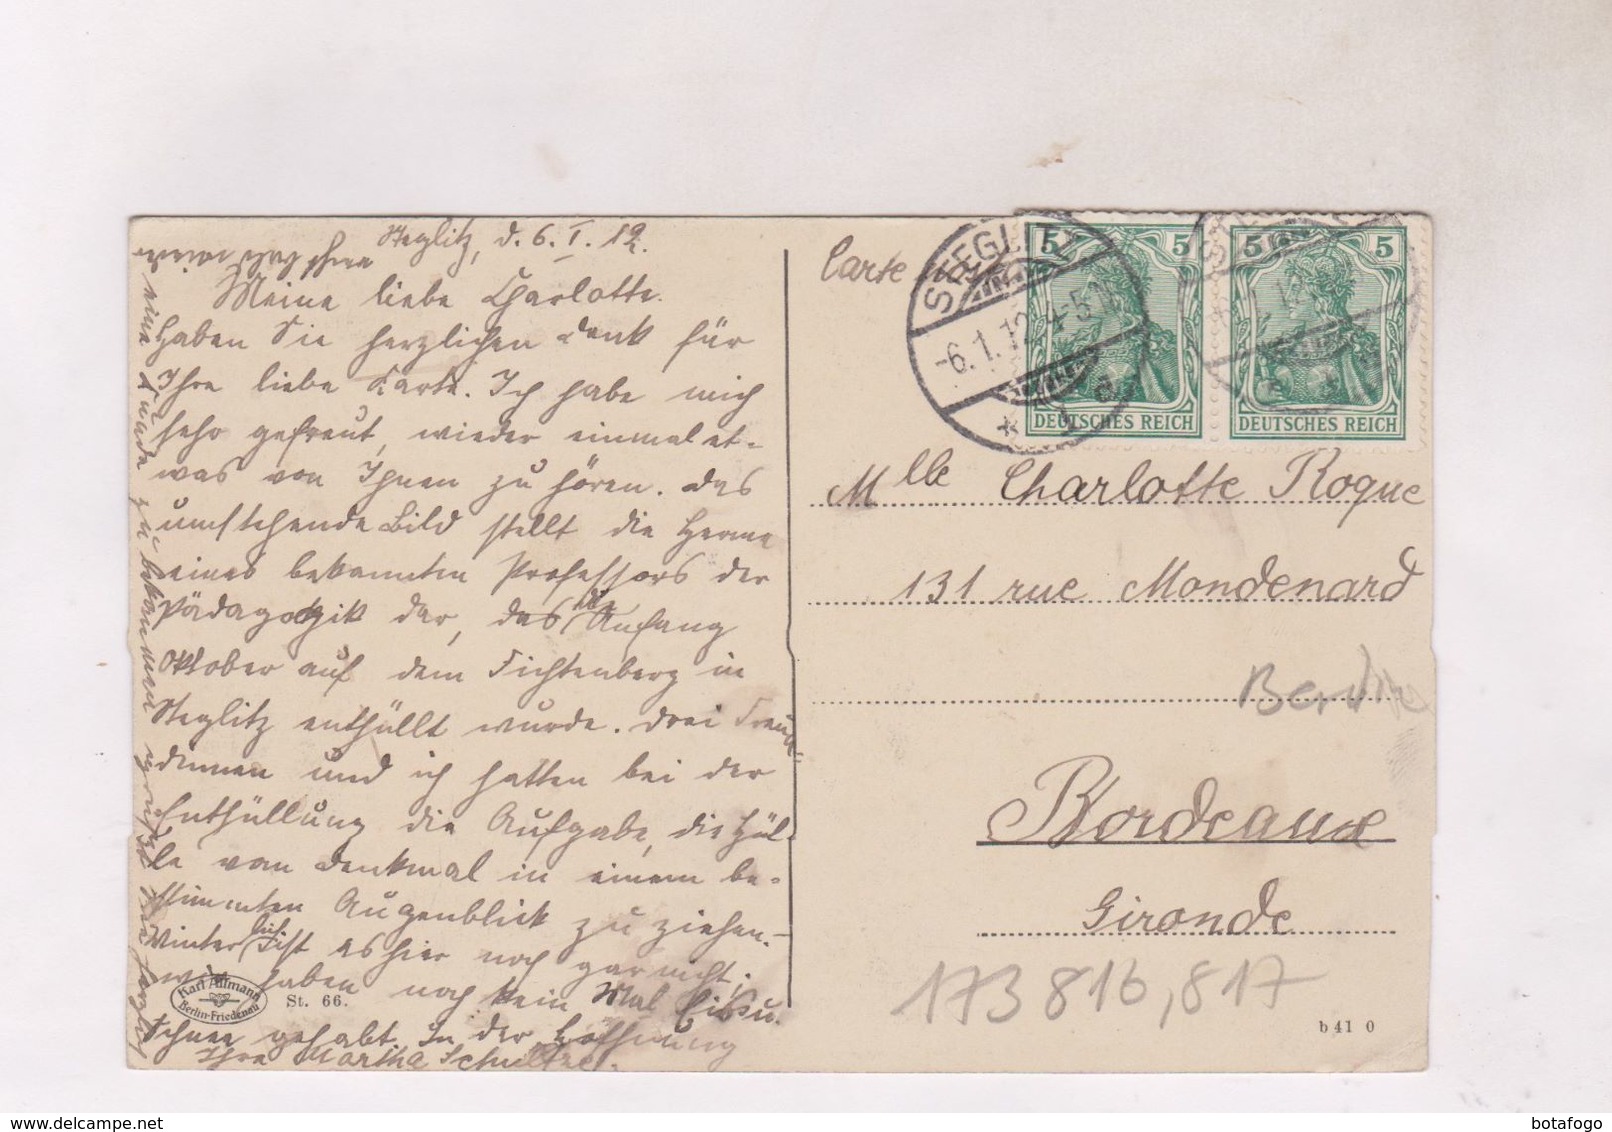 Steglitz, d. 6. I. 12.
Meine liebe Charlotte.
Haben Sie herzlichen Dank für
Ihre liebe Karte. Ich habe mich
sehr gefreut, wieder einmal et-
was von Ihnen zu hören. Das
umstehende Bild stellt die Herme
eines bekannten Professors der
Pädagogik dar, das Anfang
Oktober auf dem Fichtenberg in
Steglitz enthüllt wurde. Drei Freun-
dinnen und ich hatten bei der
Enthüllung die Aufgabe, die Hül-
le vom Denkmal in einem be-
stimmten Augenblick zu ziehen.-
Winter ist es hier noch gar nicht;
wir haben noch kein Mal Eis u.
Schnee gehabt. In der Hoffnung
eine Freude zu bekommen
Ihre Martha Schultze.
Karl Altmann
Berlin-Friedenau
St. 66.
Carte
STEGLITZ
-6.1.12.4-5N
* 1 c
5 5
DEUTSCHES REICH
5 5
DEUTSCHES REICH
Mlle Charlotte Roque
131 rue Mondenard
Berlin
Bordeaux
Gironde
173 816, 817
b 41 0
botafogo